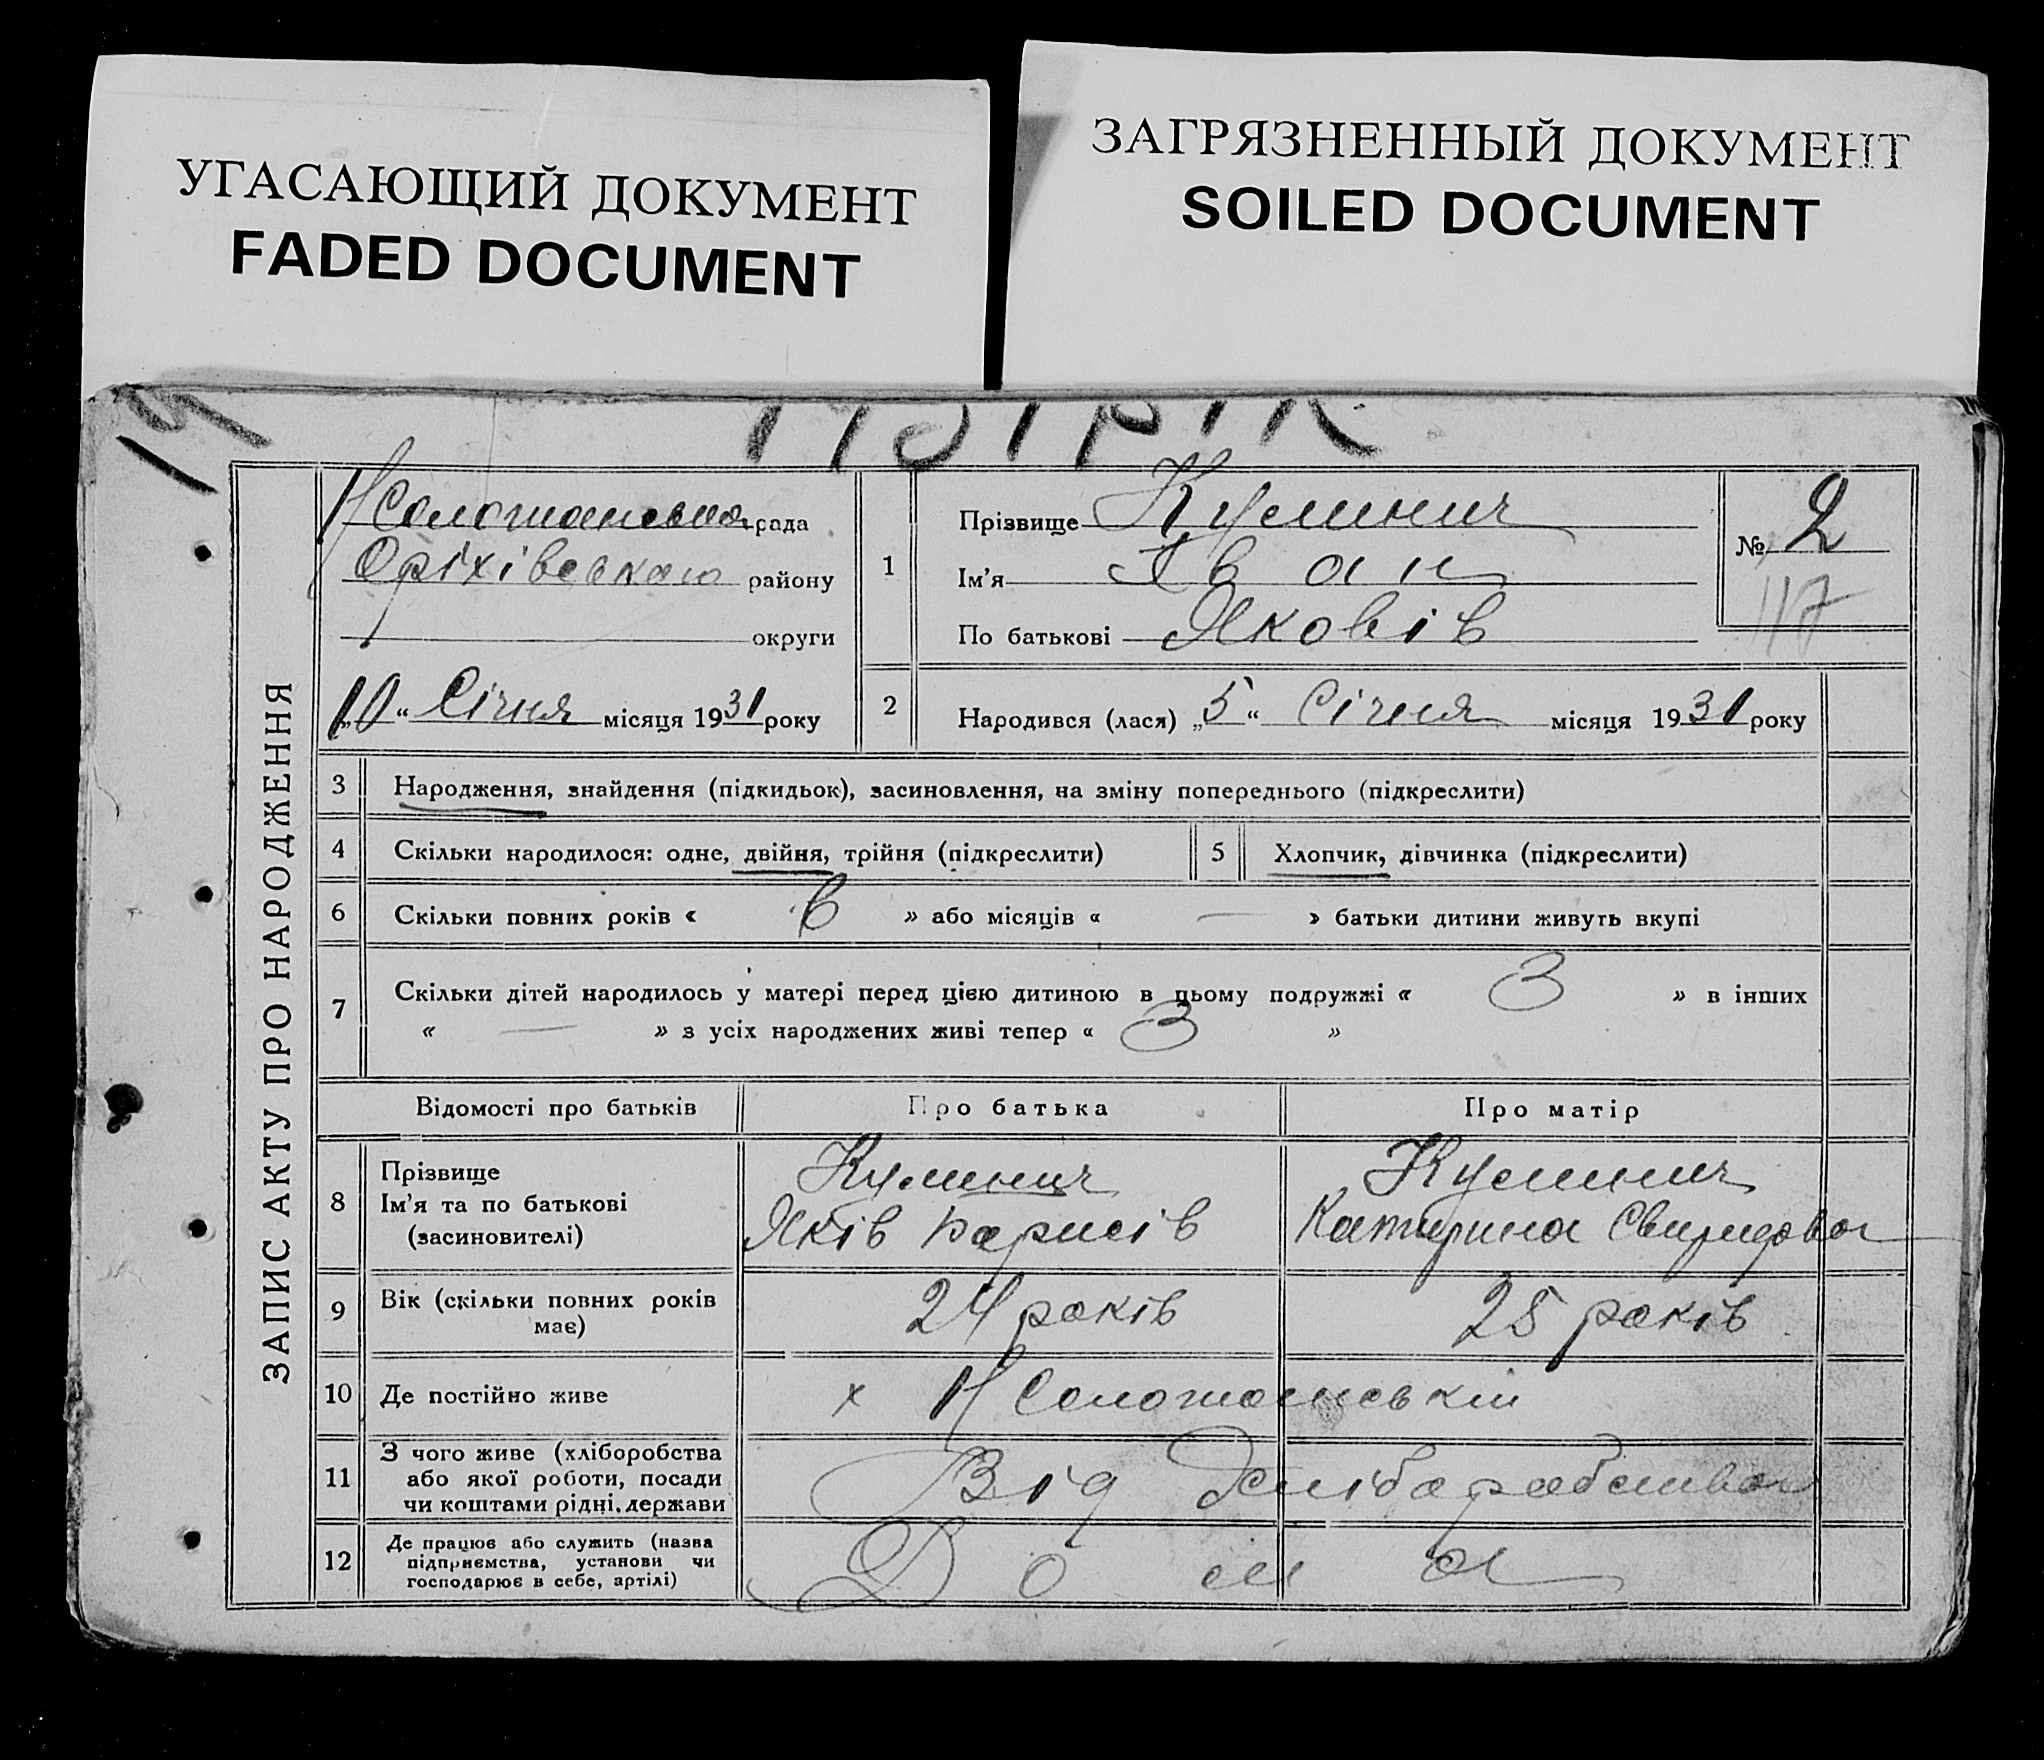 УГАСАЮЩИЙ ДОКУМЕНТ
FADED DOCUMENT
ЗАГРЯЗНЕННЫЙ ДОКУМЕНТ
SOILED DOCUMENT
ЗАПИС АКТУ ПРО НАРОДЖЕННЯ
рада
Оріхівського району
округи
„10“ Січня місяця 1931 року
1
Прізвище Кулинич
Ім'я Іван
По батькові Яковів
№ 2
117
2 Народився (лася) „5“ Січня місяця 1931 року
3 Народження, знайдення (підкидьок), засиновлення, на зміну попереднього (підкреслити)
4 Скільки народилося: одне, двійня, трійня (підкреслити) 5 Хлопчик, дівчинка (підкреслити)
6 Скільки повних років « 6 » або місяців « — » батьки дитини живуть вкупі
7 Скільки дітей народилось у матері перед цією дитиною в цьому подружжі « 3 » в інших
« — » з усіх народжених живі тепер « 3 »
Відомості про батьків Про батька Про матір
8
Прізвище Кулинич Кулинич
Ім'я та по батькові Яків Катирина Свиридова
(засиновителі)
9 Вік (скільки повних років має) 24 років 25 років
10 Де постійно живе х Н Солошанській
11 З чого живе (хліборобства
або якої роботи, посади
чи коштами рідні, держави
Від Хліборобства
12 Де працює або служить (назва
підприємства, установи чи
господарює в себе, артілі)
Дома